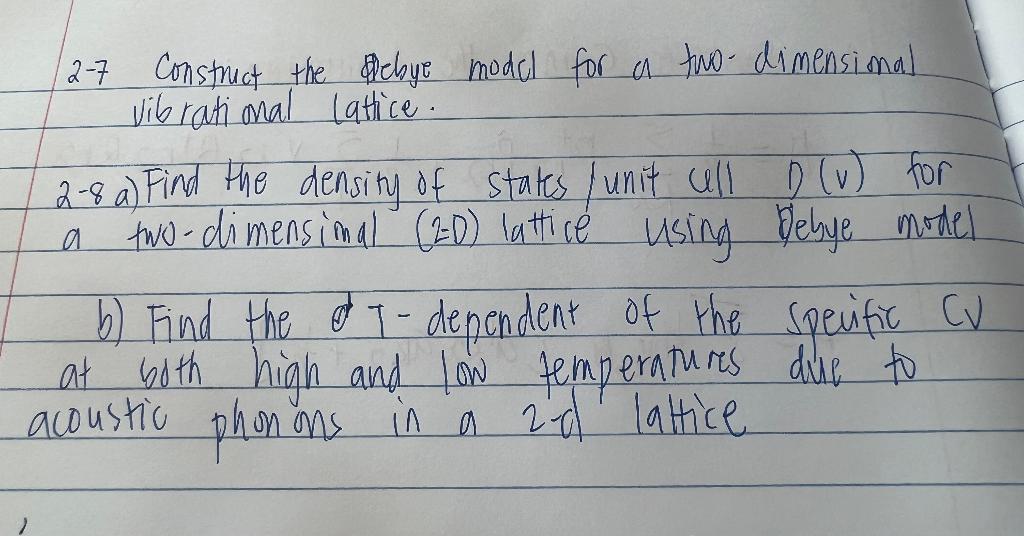 2-7 Construct the Debye model for a two-dimensional
vibrational lattice.
2-8 a) Find the density of states / unit cell D(v) for
a two-dimensional (2D) lattice using Debye model
b) Find the T-dependent of the specific Cv
at both high and low temperatures due to
acoustic phonons in a 2-d lattice